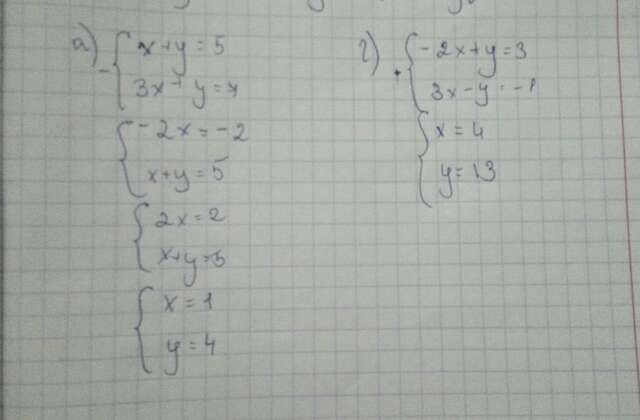 а) - { x + y = 5
3x + y = 7
{ -2x = -2
x + y = 5
{ 2x = 2
x + y = 5
{ x = 1
y = 4
г) + { -2x + y = 3
3x - y = -1
{ x = 4
y = 13